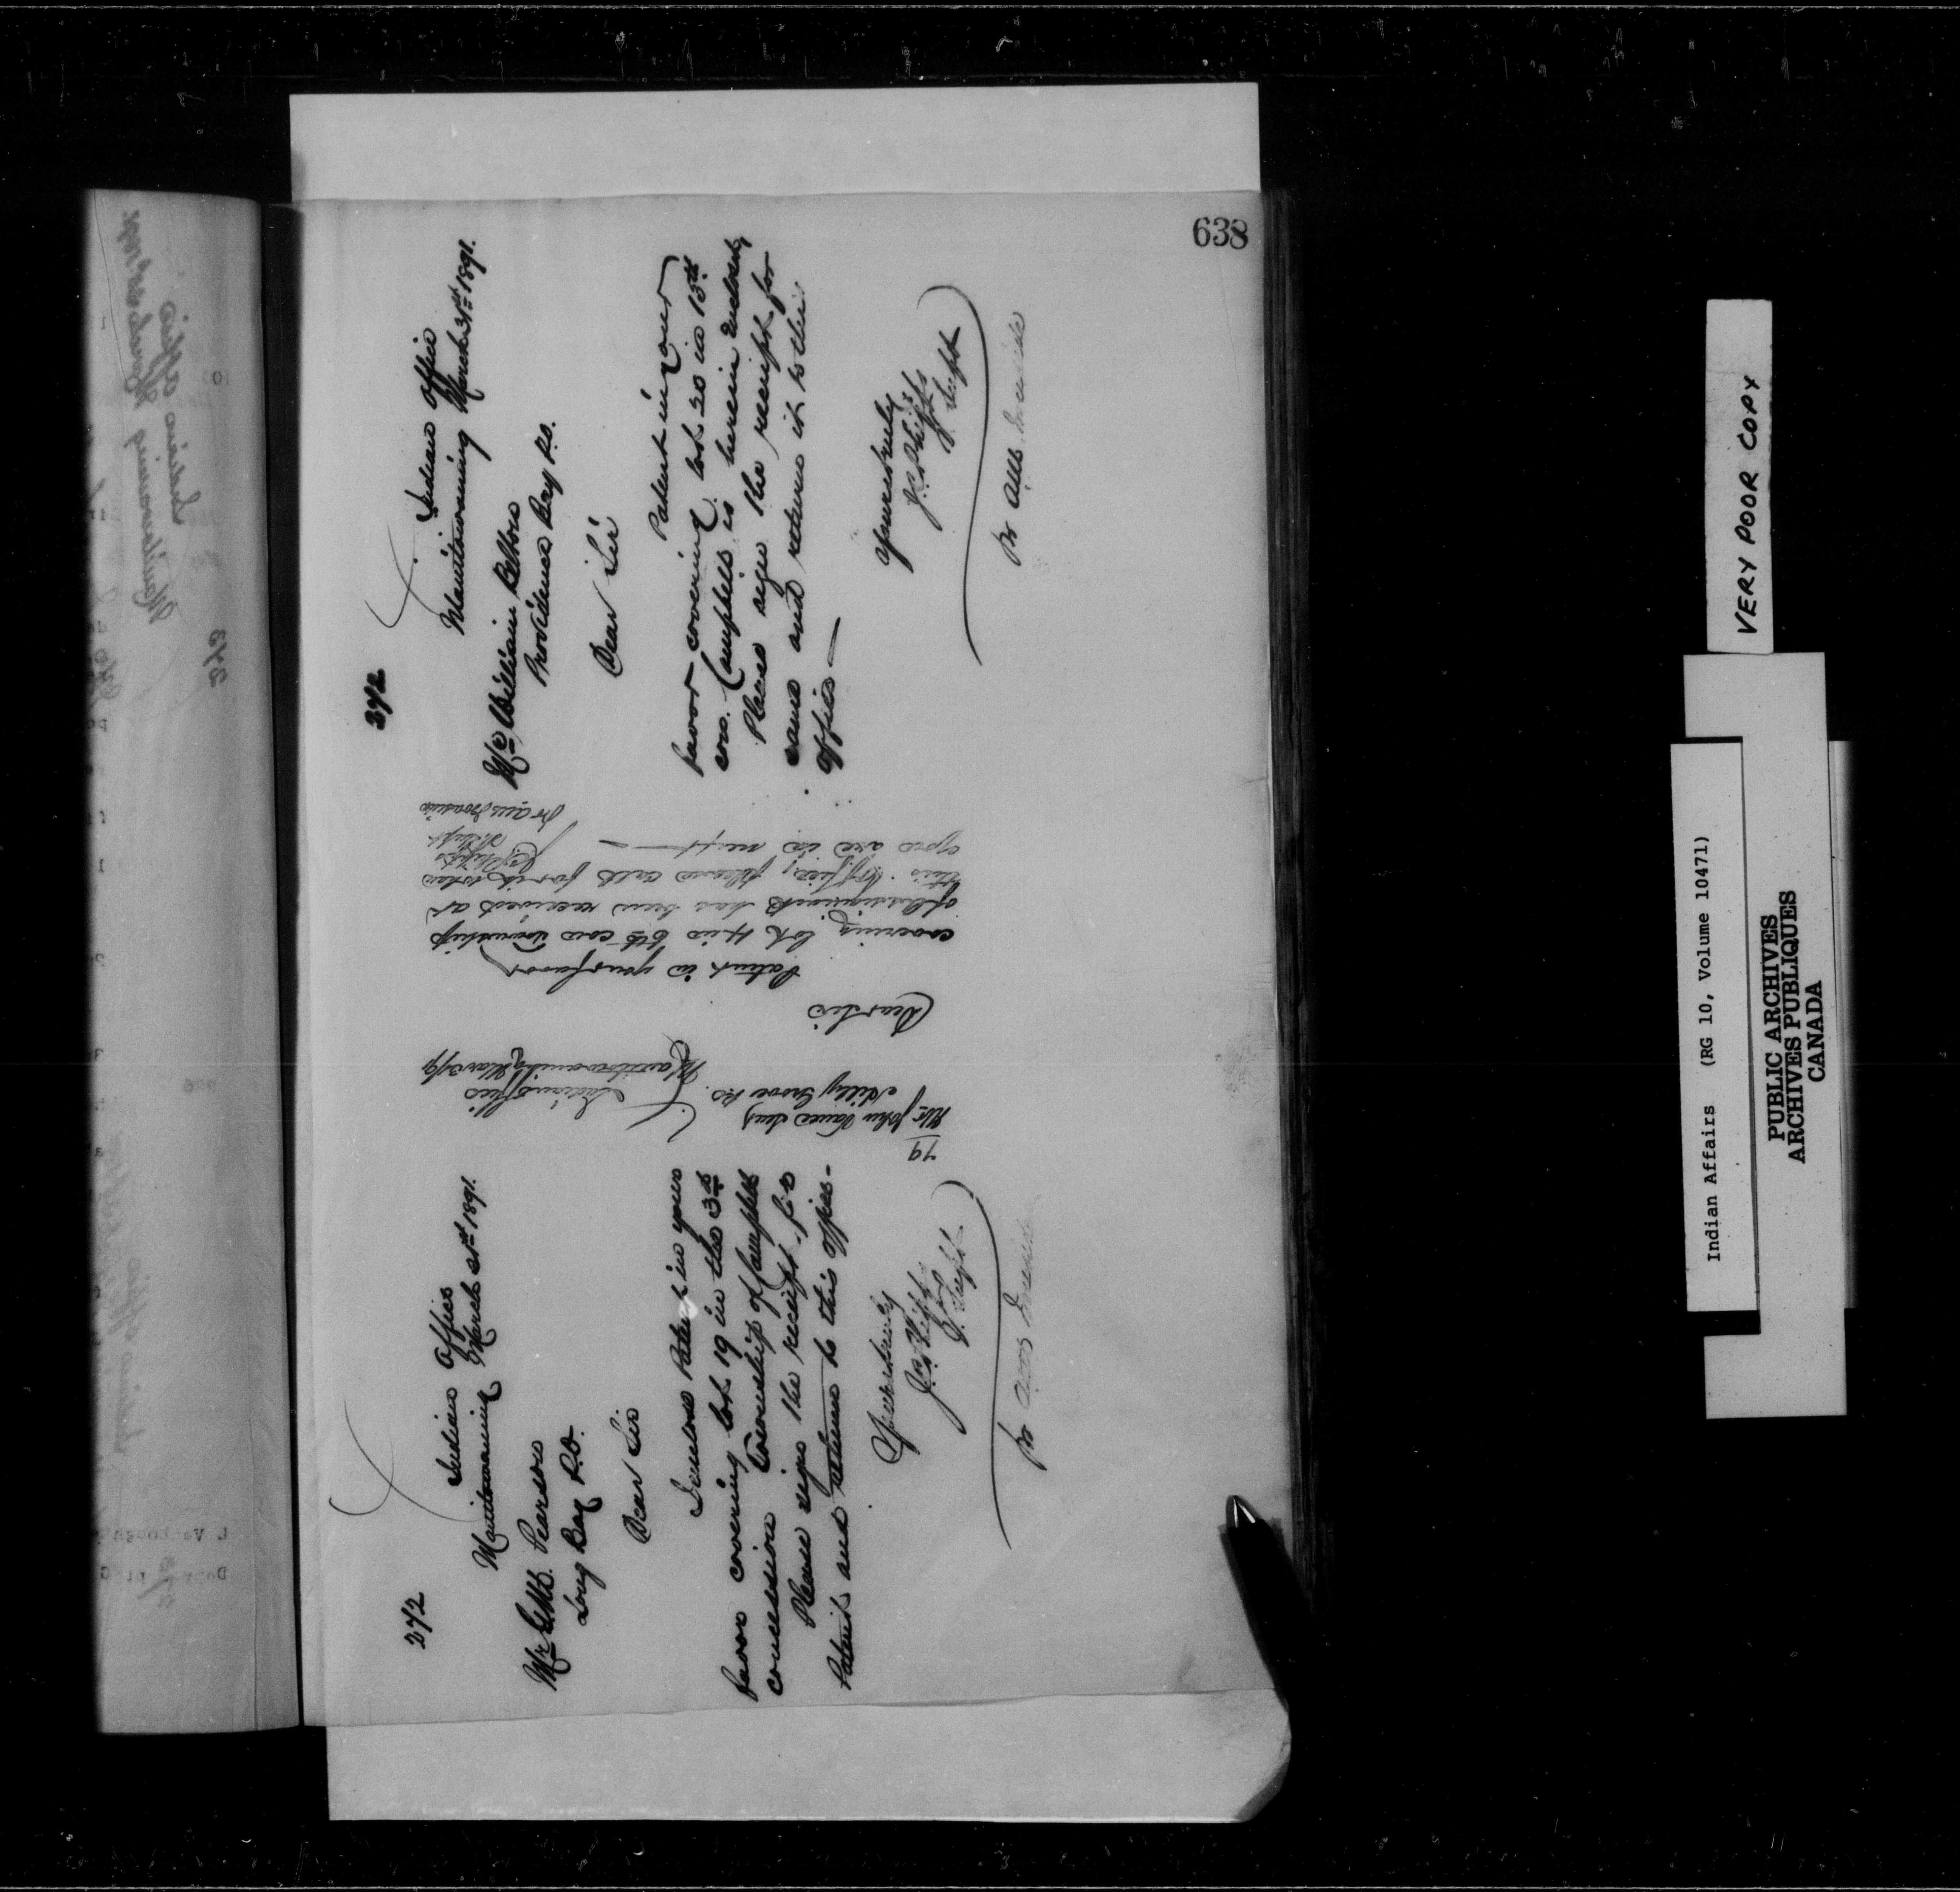 638
272
Indian Office
Manitowaning March 31st 1891.
Mr William Belton
Providence Bay P.O.
Dear Sir
Patent in your
favor covering lot 20 in 13th
con. Campbell is herein enclosed,
Please sign the receipt for
same and return it to this
office —
Yours truly
J.C. Phipps
V. Supt
pr
79
Mr John Vance Senr
Hilly Grove P.O.
Indian Office
Manitowaning Mar 31/91
Dear Sir
Patent in your favor
covering lot 4 in 6th con Township
of Assiginack has been received at
this office, please call for it when
you are in next —
J.C. Phipps
V. Supt
pr
272
Indian Office
Manitowaning March 31st 1891.
Mr
Pearson
Long Bay P.O.
Dear Sir
I enclose Patent in your
favor covering lot 19 in the 3rd
concession Township of Campbell
Please sign the receipt for
Patent and return to this office -
Yours truly
J.C. Phipps
V. Supt
pr
VERY POOR COPY
Indian Affairs (RG 10, Volume 10471)
PUBLIC ARCHIVES
ARCHIVES PUBLIQUES
CANADA